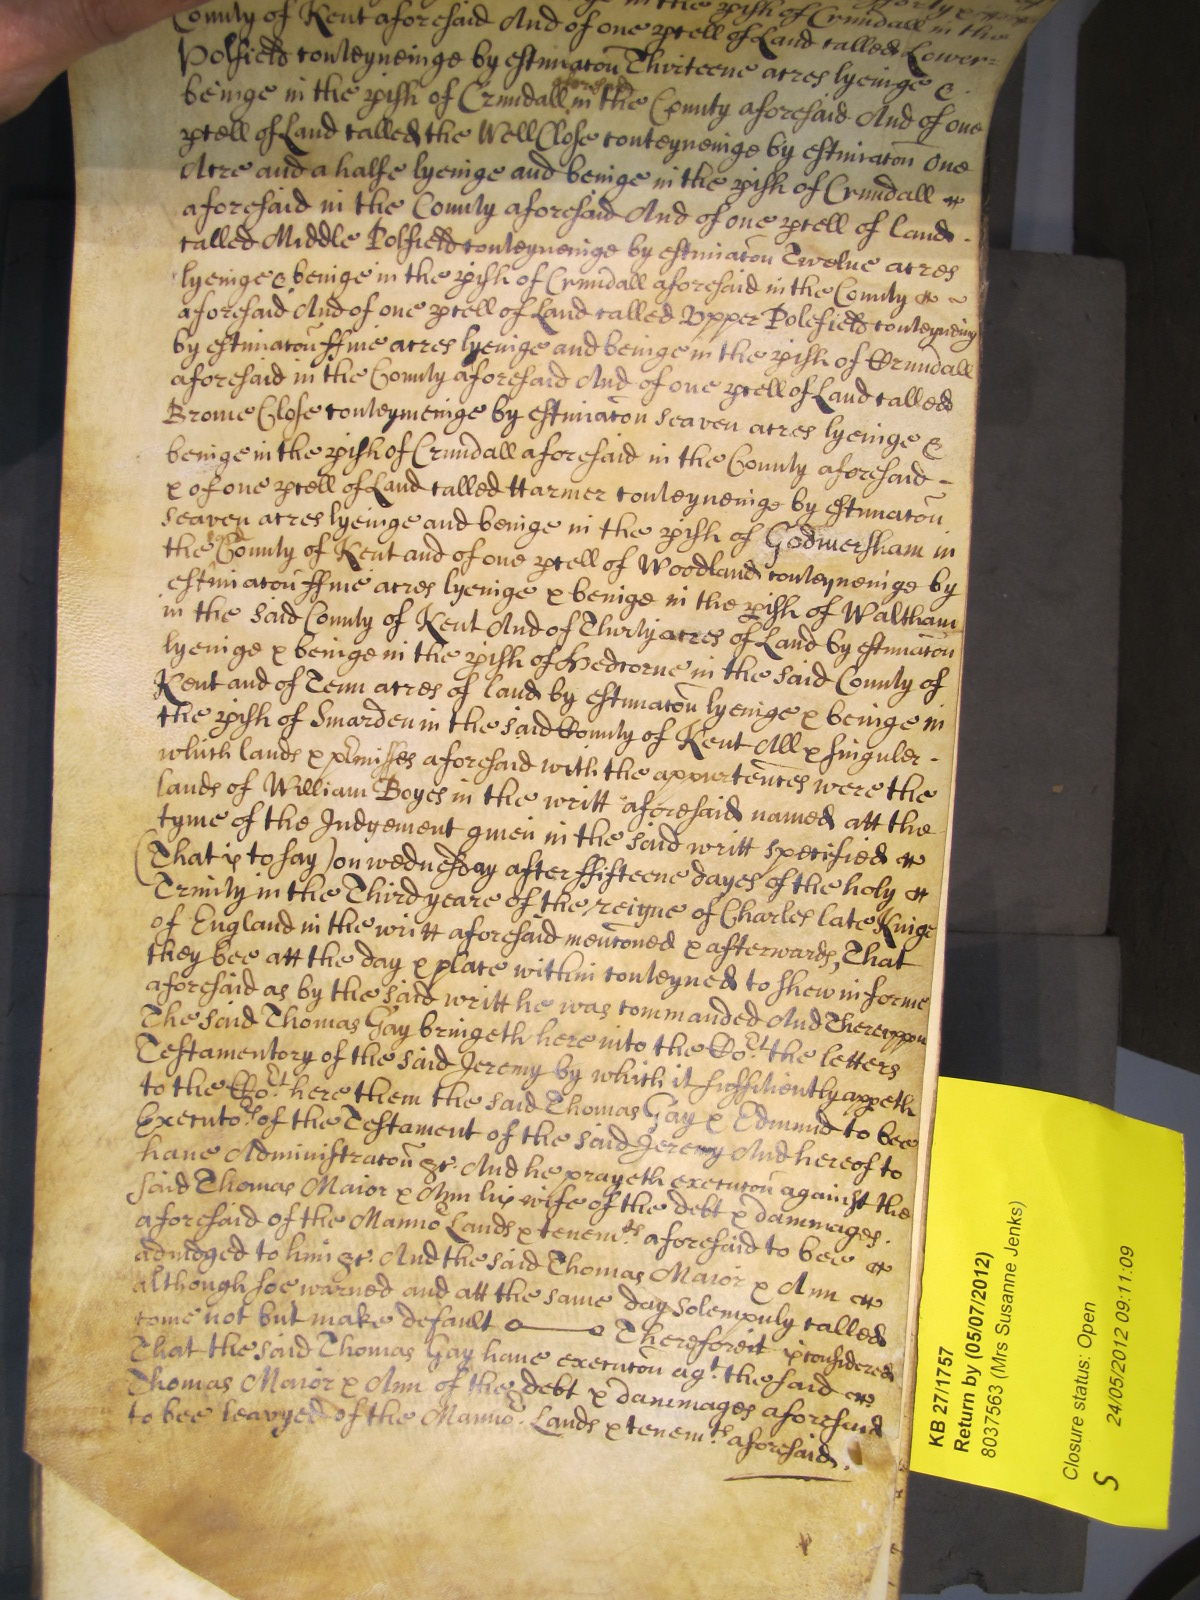 in the pish of Crundall in the
County of Kent aforesaid And of one pcell of Land called Lower-
Polfield conteyneinge by estimacon Thirteene acres lyeinge &
beinge in the pish of Crundall aforesaid in the County aforesaid And of one
pcell of Land called the Well Close conteyneinge by estimacon One
Acre and a halfe lyeinge and beinge in the pish of Crundall
aforesaid in the County aforesaid And of one pcell of Land -
called Middle Polfield conteyneinge by estimacon Twelue acres
lyeinge & beinge in the pish of Crundall aforesaid in the County
aforesaid And of one pcell of Land called Upper Polefield conteyneing
by estimacon ffiue acres lyeinge and beinge in the pish of Crundall
aforesaid in the County aforesaid And of one pcell of Land called
Brome Close conteyneinge by estimacon Seaven acres lyeinge &
beinge in the pish of Crundall aforesaid in the County aforesaid -
& of one pcell of Land called Harmer conteyneinge by estimacon
Seaven acres lyeinge and beinge in the pish of Godmersham in
the said County of Kent and of one pcell of Woodland conteyneinge by
estimacon ffiue acres lyeinge & beinge in the pish of Waltham
in the said County of Kent And of Thirty acres of Land by estimacon
lyeinge & beinge in the pish of Hedcorne in the said County of
Kent and of Tenn acres of land by estimacon lyeinge & beinge in
the pish of Smarden in the said County of Kent All & singuler -
which lands & pmisses aforesaid with the appurtences were the
lands of William Boyes in the writt aforesaid named att the
tyme of the Judgement giuen in the said writt specified
(That is to say) on wednesday after ffifteene dayes of the holy
Trinity in the Third yeare of the reigne of Charles late Kinge
of England in the writt aforesaid menconed & afterwards, That
they bee att the day & place within conteyned to shew in forme
aforesaid as by the said writt he was commanded And Thereuppon
The said Thomas Gay bringeth here into the Cort the letters
Testamentory of the said Jeremy by which it suffitiently appeth
to the Cort here them the said Thomas Gay & Edmund to bee
Executors of the Testament of the said Jeremy And hereof to
haue Administracon &c. And he prayeth execucon against the
said Thomas Maior & Ann his wife of the debt & dammages.
aforesaid of the Mannor Lands & tenemts aforesaid to bee
adiudged to him &c. And the said Thomas Maior & Ann
although soe warned and att the same day Solempnly called
come not but make default Therefore it is considered
That the said Thomas Gay haue execucon agt the said
Thomas Maior & Ann of the debt & dammages aforesaid
to bee leavyed of the Mannor Lands & tenemts aforesaid.
KB 27/1757
Return by (05/07/2012)
8037563 (Mrs Susanne Jenks)
Closure status: Open
S 24/05/2012 09:11:09